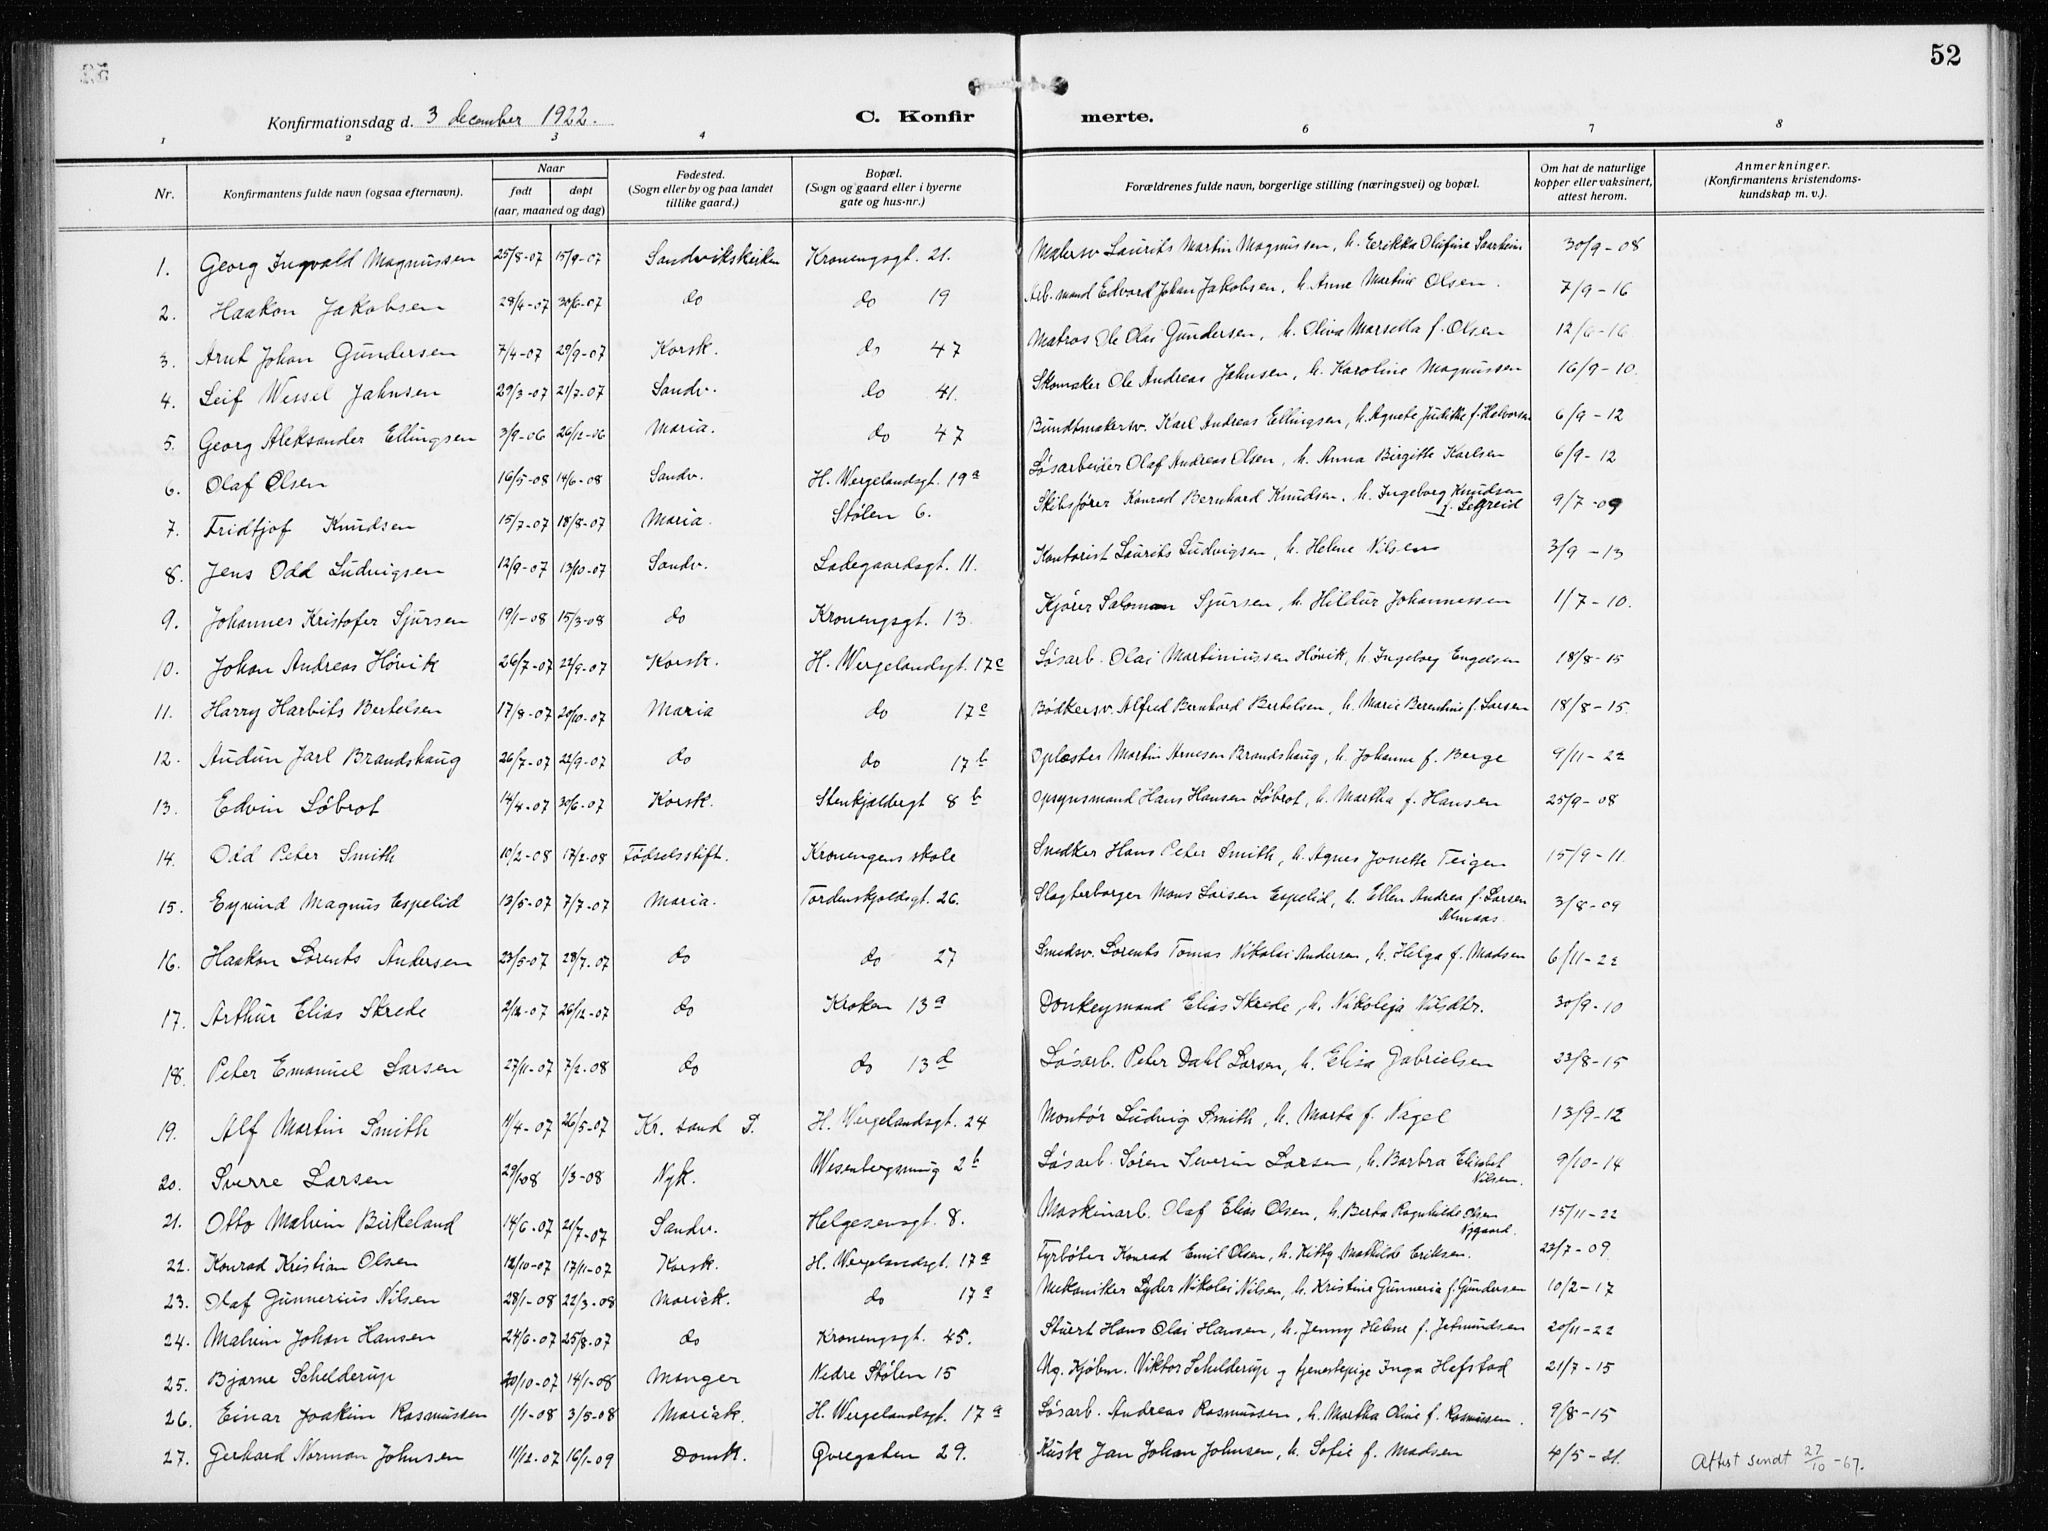 52
Konfirmationsdag d. 3 december 1922.
C. Konfirmerte.
1 2 3 4 5 6 7 8
Nr. | Konfirmantens fulde navn (ogsaa efternavn). | Naar født døpt (aar, maaned og dag) | Fødested. (Sogn eller by og paa landet tillike gaard.) | Bopæl. (Sogn og gaard eller i byerne gate og hus-nr.) | Forældrenes fulde navn, borgerlige stilling (næringsvei) og bopæl. | Om hat de naturlige kopper eller vaksinert, attest herom. | Anmerkninger. (Konfirmantens kristendomskundskap m. v.).
1. Georg Ingvald Magnussen 25/8-07 15/9-07 Sandvikskirken Kronengsgt. 21. Malersv Laurits Martin Magnussen, h. Eerikka Olufine 30/9-08
2. Haakon Jakobsen 28/4-07 30/6-07 do do 19 Arb. mand Edvard Johan Jakobsen, h. Anne Martine Olsen. 7/9-16
3. Arnt Johan Gundersen 7/4-07 29/9-07 Korsk. do 47 Matros Ole Olai Gundersen, h. Oliva Marsella f. Olsen 12/6-16
4. Leif Wessel Jahnsen 29/3-07 21/7-07 Sandv. do 41. Skomaker Ole Andreas Jahnsen, h. Karoline Magnussen 16/9-10.
5. Georg Aleksander Ellingsen 3/9-06 26/12-06 Maria. do 47 Bundtmakersv. Karl Andreas Ellingsen, h. Agnete Judithe f. Halvorsen 6/9-12
6. Olaf Olsen 16/5-08 14/6-08 Sandv. H. Wergelandsgt. 19a Løsarbeider Olaf Andreas Olsen, h. Anna Birgitte Karlsen 6/9-12
7. Fridtjof Knudsen 15/7-07 18/8-07 Maria. Stølen 6. Skibsfører Konrad Bernhard Knudsen, h. Ingeborg Knudsen f. Setreid 9/7-09
8. Jens Odd Ludvigsen 12/9-07 13/10-07 Sandv. Ladegaardsgt. 11. Kontorist Laurits Ludvigsen, h. Helene Nilsen 3/9-13
9. Johannes Kristofer Sjursen 19/1-08 15/3-08 do Kronengsgt. 13. Kjører Salomon Sjursen, h. Hildur Johannessen 1/7-10.
10. Johan Andreas Høvik 26/7-07 22/9-07 Korsk. H. Wergelandsgt. 17c Løsarb. Olai Martiniussen Høvik, h. Ingeborg Engelsen 18/8-15
11. Harry Harbits Bertelsen 17/8-07 20/10-07 Maria do 17c Bødkersv. Alfred Bernhard Bertelsen, h. Marie Berentine f. Larsen 18/8-15.
12. Audun Jarl Brandshaug 26/7-07 22/9-07 do do 17b Oplæster Martin Arnesen Brandshaug, h. Johanne f. Berge 9/11-22
13. Edvin Løbrot 14/4-07 30/6-07 Korsk. Stenkjelbergt 8b Opsynsmand Hans Hansen Løbrot, h. Martha f. Hansen 25/9-08
14. Odd Peter Smith 10/2-08 17/2-08 Fødselsstift. Kronengens skole Snedker Hans Peter Smith, h. Agnes Jonette Teigen 15/9-11.
15. Eyvind Magnus Espelid 13/5-07 7/7-07 Maria. Tordenskjoldsgt. 26. Slagterborger Mons Larsen Espelid, h. Ellen Andrea f. Larsen Almaas. 3/8-09
16. Haakon Lorents Andersen 23/5-07 28/7-07 do do 27 Smedsv. Lorents Tomas Nikolai Andersen, h. Helga f. Madsen 6/11-22
17. Arthur Elias Skrede 2/12-07 26/12-07 do Kroken 13a Donkeymand Elias Skrede, h. Nikoleja Nilsdtr. 30/9-10
18. Peter Emanuel Larsen 27/11-07 7/2-08 do do 13d Løsarb. Peter Dahl Larsen, h. Elisa Gabrielsen 23/8-15
19. Alf Martin Smith 11/4-07 26/5-07 Kr. sand S. H. Wergelandsgt. 24 Montør Ludvig Smith, h. Marta f. Nagel 13/9-12
20. Sverre Larsen 29/1-08 1/3-08 Nyk. Wesenbergsmug 2b Løsarb. Søren Severin Larsen, h. Barbra Elisabet Nilsen. 9/10-14
21. Otto Malvin Birkeland 14/6-07 21/7-07 Sandv. Helgesensgt. 8. Maskinarb. Olaf Elias Olsen, h. Berta Ragnhilde Olsen Nygaard. 15/11-22
22. Konrad Kristian Olsen 12/10-07 17/11-07 Korsk. H. Wergelandsgt. 17a Fyrbøter Konrad Emil Olsen, h. Kitty Mathilde Eriksen. 23/7-09.
23. Olaf Gunnerius Nilsen 28/1-08 22/3-08 Mariak. do 17a Mekaniker Lyder Nikolai Nilsen, h. Kristine Gunneria f. Gundersen 10/2-17
24. Malvin Johan Hansen 24/6-07 25/8-07 do Kronengsgt. 45. Stuert Hans Olai Hansen, h. Jenny Helene f. Jetmundsen 20/11-22
25. Bjarne Schelderup 20/10-07 14/1-08 Manger Nedre Stølen 15 Ug. Kjøbm. Viktor Schelderup og tjenestepige Inga Hefstad 21/7-15
26. Einar Joakim Rasmussen 1/1-08 3/5-08 Mariak. H. Wergelandsgt. 17a Løsarb. Andreas Rasmussen, h. Martha Oline f. Rasmussen. 9/8-15
27. Gerhard Norman Johnsen 11/12-07 16/1-09 Domk. Øvregaten 29. Kusk Jan Johan Johnsen, h. Sofie f. Madsen 4/5-21. Attest sendt 27/10-67.